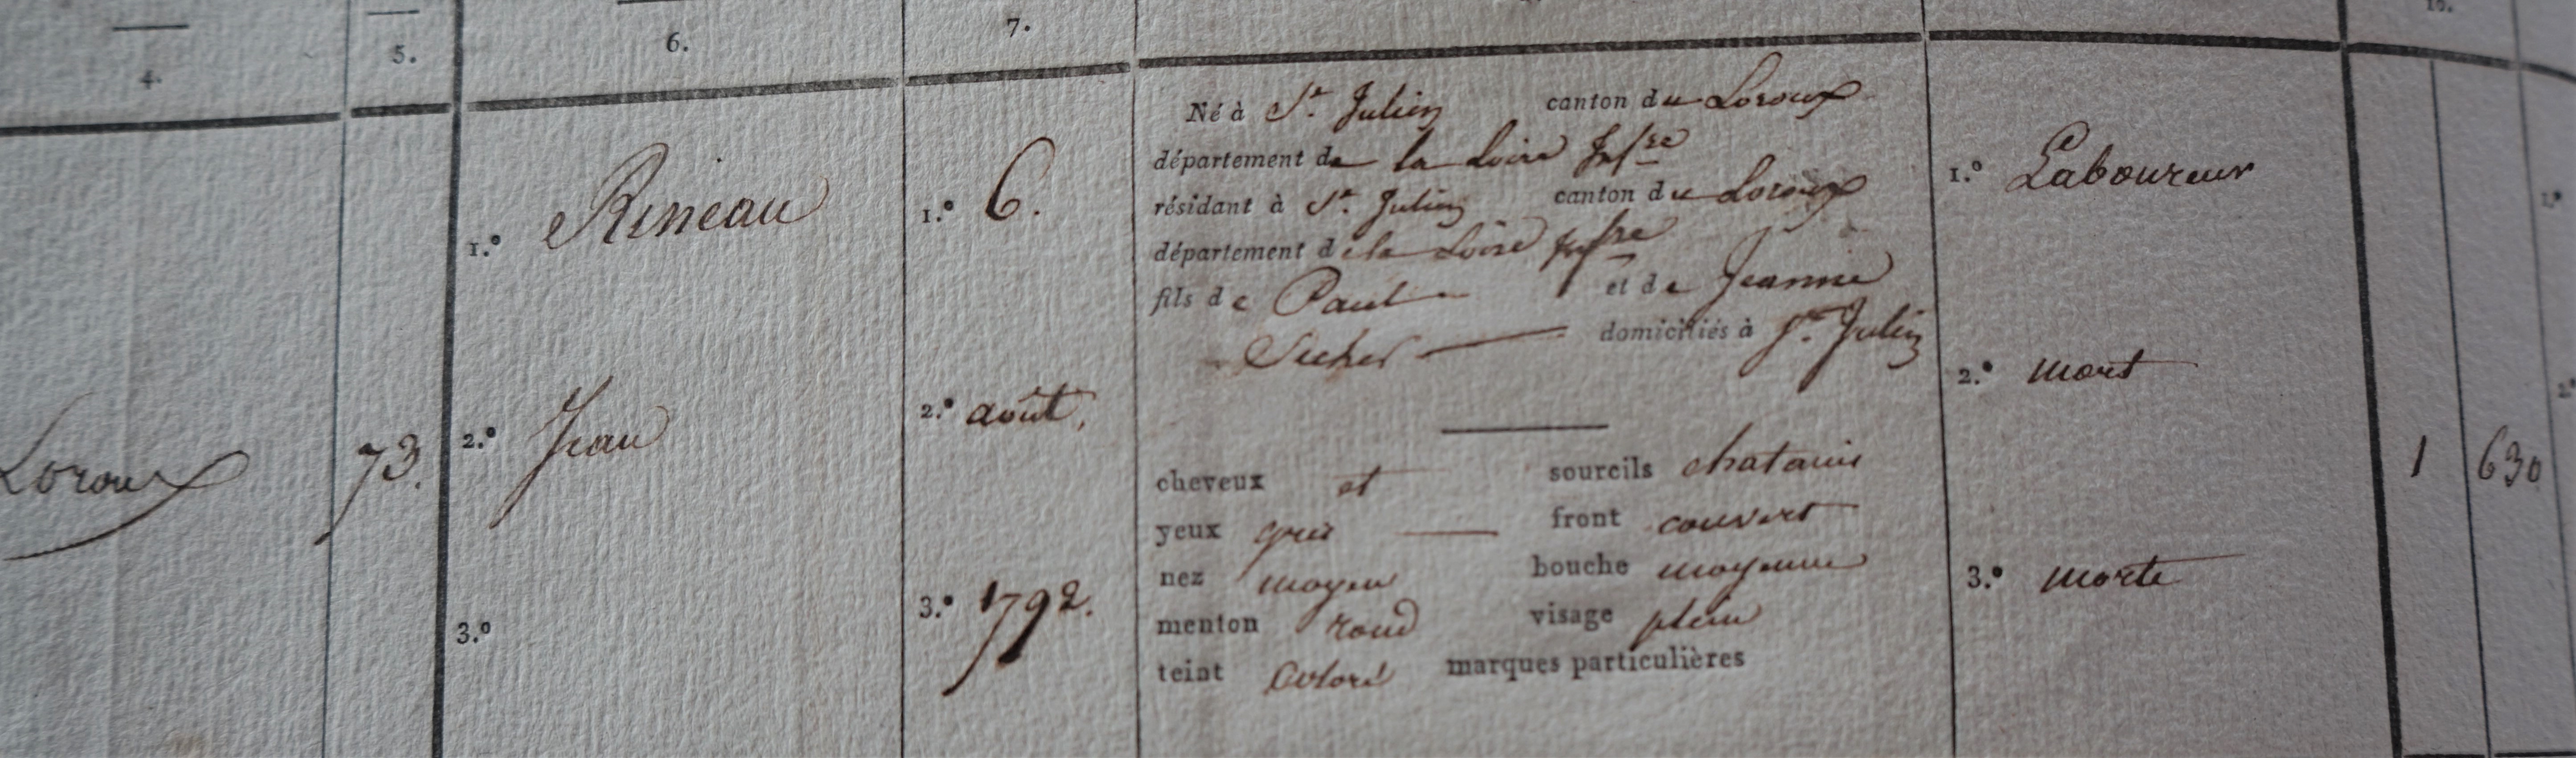 4.
5.
6.
7.
10.
Loroux
73.
1.º Rineau
2.º Jean
3.º
1.º 6.
2.º août.
3.º 1792.
Né à St. Julien canton du Loroux
département de la Loire Infre
résidant à St. Julien canton du Loroux
département de la Loire Infre
fils de Paul et de Jeanne
Secher domiciliés à St. Julien
cheveux et sourcils chatains
yeux gris front couvert
nez moyen bouche moyenne
menton rond visage plein
teint coloré marques particulières
1.º Laboureur
2.º mort
3.º morte
1 630
1.º
2.º